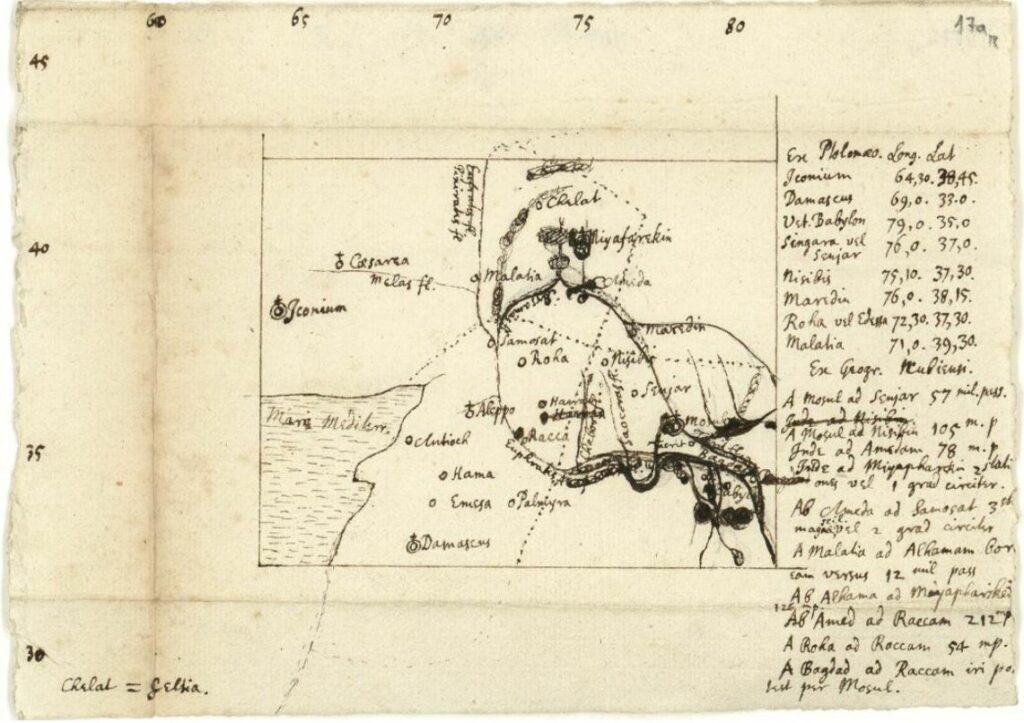 60 65 70 75 80
17a
45
40
35
30
Euphrates fl.
Chelat
Miyafarekin
Cæsarea
Malatia
Ameda
Melas fl.
Iconium
Samosat
Maredin
Roha
Nisibis
Senjar
Aleppo
Harran
Mare Mediterr.
Antioch
Racca
Euphrates
Hama
Emesa
Palmyra
Damascus
Chelat =
Ex Ptolomæo. Long. Lat
Iconium 64,30. 38,45.
Damascus 69,0. 33.0.
Vet. Babylon 79,0. 35,0
Singara vel 76,0. 37,0.
Senjar
Nisibis 75,10. 37,30.
Maredin 76,0. 38,15.
Roha vel Edessa 72,30. 37,30.
Malatia 71,0. 39,30.
Ex Geogr. Nubiensi.
A Mosul ad Senjar 57 mil. pass.
Inde ad Nisibin
A Mosul ad Nisibin 105 m.p
Inde ad Amedam 78 m.p
Inde ad Miyapharekin 2 stati
ones vel 1 grad circiter.
Ab Ameda ad Samosat 3
vel 2 grad circiter
A Malatia ad Alhamam bor
eam versus 12 mil pass
Ab Alhama ad Miyapharikin
126 m p.
Ab Amed ad Raccam 212 mp
A Roha ad Roccam 54 mp.
A Bagdad ad Raccam iri po
test per Mosul.